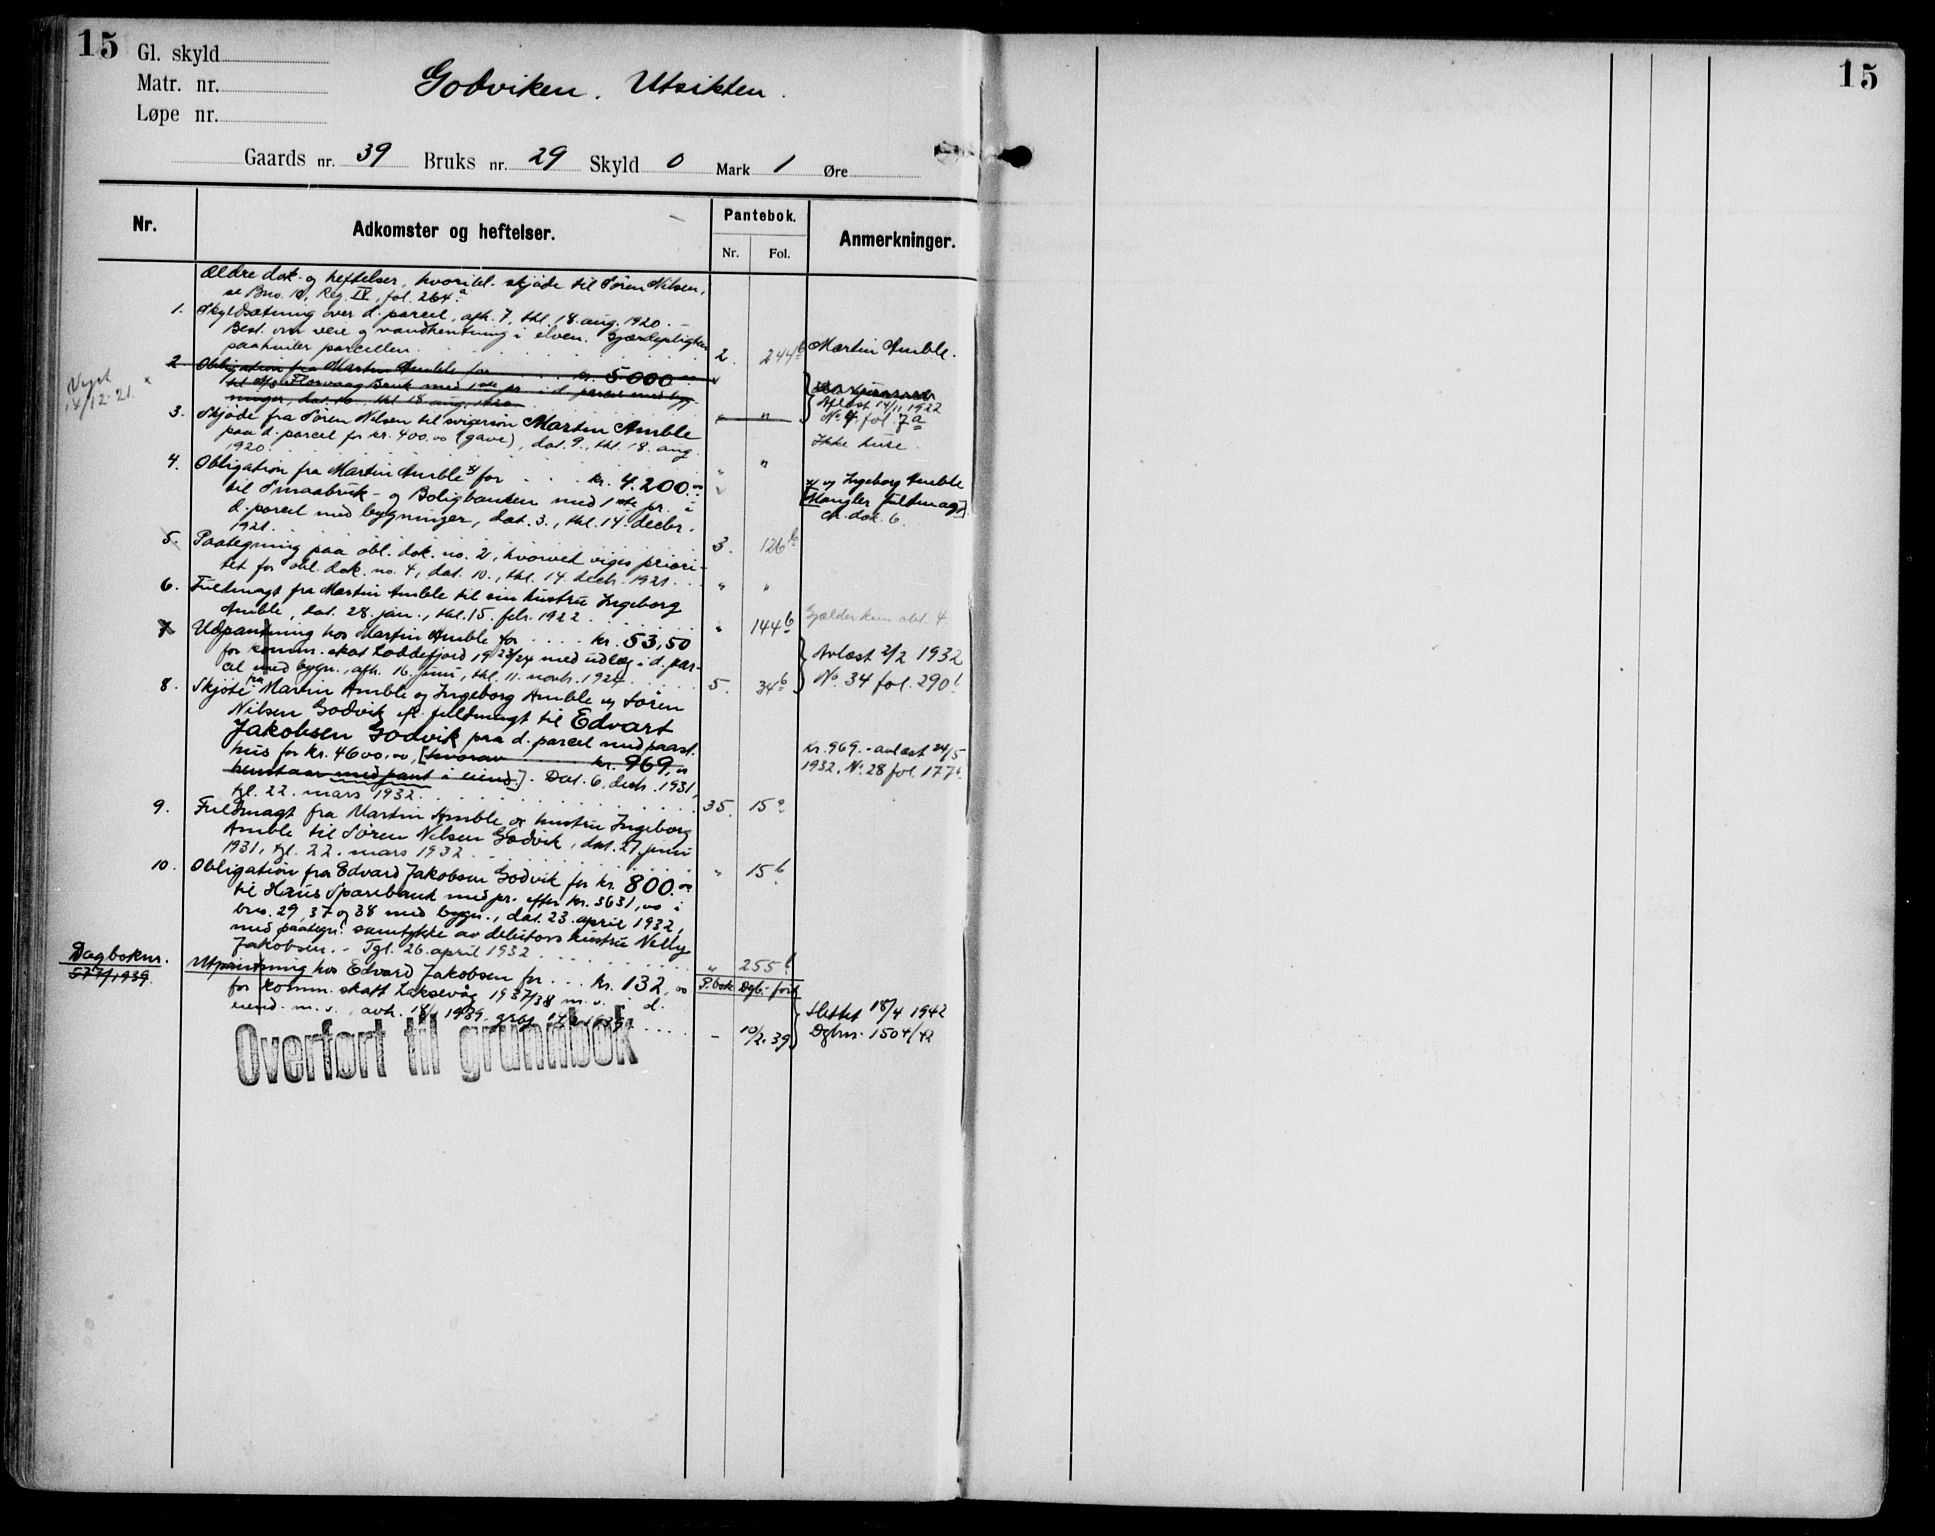 15
Gl. skyld
Matr. nr.
Løpe nr.
Godviken. Utsikten.
Gaards nr. 39 Bruks nr. 29 Skyld 0 Mark 1 Øre
Nr.
Adkomster og heftelser.
Pantebok.
Nr. Fol.
Anmerkninger.
Ældre dok. og heftelser, hvoribl. skjøde til Søren Nilsen,
se Bno. 10, Reg. IV, fol. 264a.
1. Skyldsætning over d. parcel, afh. 7, thl. 18. aug. 1920. –
Best. om veie og vandhentning i elven. Gjerdepligten
paahviler parcellen. 2. 244b Martin Amble.
2 Obligation fra Martin Amble for kr. 5000.00
til A/S Florvaag Bruk med 1ste pr. i d. parcel med byg-
ninger, dat. 10., thl. 18. aug. 1920. " "
Veget 14/12.21. x
Aflæst 14/11 1922
No. 4 fol. 7a
3. Skjøde fra Søren Nilsen til svigersøn Martin Amble
paa d. parcel for kr. 400.00 (gave), dat. 9., thl. 18. aug.
1920. " " Ikke huse.
4. Obligation fra Martin Amble x) for kr. 4.200.00
til Smaabruk- og Boligbanken med 1ste pr. i
d. parcel med bygninger, dat. 3., thl. 14. decbr.
1921. 3. 126b
x) og Ingeborg Amble
[Mangler fuldmagt]
cfr. dok. 6.
5. Paategning paa obl. dok. no. 2, hvorved viges priori-
tet for obl. dok. no. 4, dat. 10., thl. 14. decb. 1921. " "
6. Fuldmagt fra Martin Amble til sin hustru Ingeborg
Amble, dat. 28. jan., thl. 15. febr. 1922. " 144b Gjelder kun obl. 4
7 Udpantning hos Martin Amble for kr. 53,50
for komm. skat Loddefjord 1923/24 med udlæg i d. par-
cel med bygn., afh. 16. juni, thl. 11. novb. 1924. 5. 34b
Avlæst 2/2 1932
No. 34 fol. 290b
8. Skjøte fra Martin Amble og Ingeborg Amble og Søren
Nilsen Godvik efl. fuldmagt til Edvart
Jakobsen Godvik paa d. parcel med paast.
hus for kr. 4600,00, [hvorav kr. 969,00
henstaar med pant i eiend.]. Dat. 6. decb. 1931,
tgl. 22. mars 1932. 35. 15a
Kr. 969.- avlæst 24/5
1932, No. 28 fol. 177b.
9. Fuldmagt fra Martin Amble og hustru Ingeborg
Amble til Søren Nilsen Godvik, dat. 27. juni
1931, tgl. 22. mars 1932 " 15b
10. Obligation fra Edvard Jakobsen Godvik for kr. 800.00
til Haus Sparebank med pr. efter kr. 3631,00 i
bno. 29, 37 og 38 med bygn., dat. 23. april 1932,
med paategn. samtykke av debitors hustru Nelly
Jakobsen. - Tgl. 26. april 1932 " 255b
Dagboknr.
577/1939.
Utpantning hos Edvard Jakobsen for kr. 132,00
for komm. skatt Laksevåg 1937/38 m. v. i d.
eiend. m. v., avh. 18/1 1939, grbf. 14/2 1939.
P.bok Dgb.-ført
– 10/2.39
Slettet 18/4 1942
Dgbnr. 1504/42
Overført til grunnbok
15